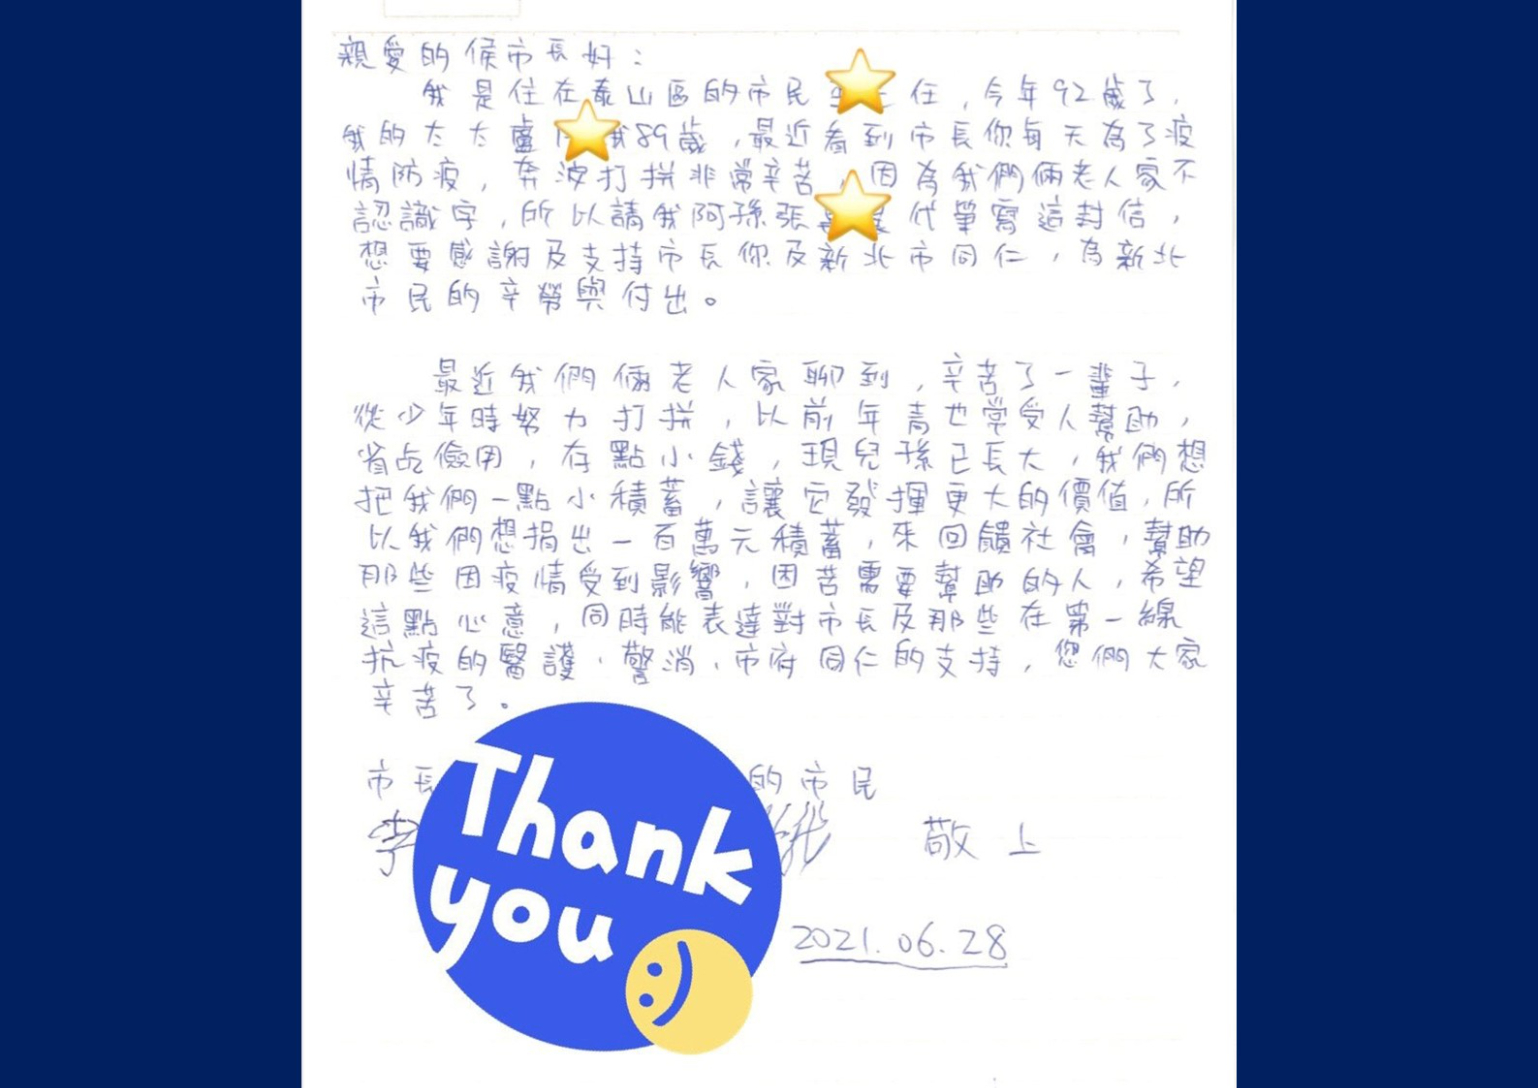 親愛的侯市長好：
我是住在泰山區的市民 任，今年92歲了，
我的太太盧 89歲，最近看到市長你每天為了疫
情防疫，奔波打拼非常辛苦，因為我們倆老人家不
認識字，所以請我阿孫張 代筆寫這封信，
想要感謝及支持市長你及新北市同仁，為新北
市民的辛勞與付出。
最近我們倆老人家聊到，辛苦了一輩子，
從少年時努力打拼，以前年青也常受人幫助，
省吃儉用，存點小錢，現兒孫已長大，我們想
把我們一點小積蓄，讓它發揮更大的價值，所
以我們想捐出一百萬元積蓄，來回饋社會，幫助
那些因疫情受到影響，困苦需要幫助的人，希望
這點心意，同時能表達對市長及那些在第一線
抗疫的醫護、警消、市府同仁的支持，您們大家
辛苦了。
市長 的市民
李 敬上
Thank
you
2021.06.28